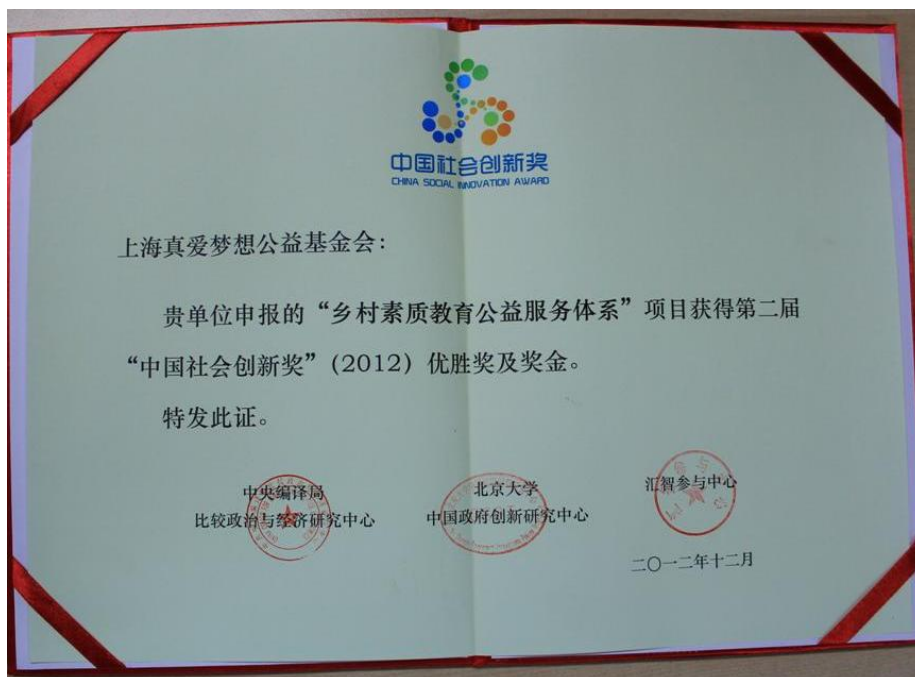 中国社会创新奖
CHINA SOCIAL INNOVATION AWARD
上海真爱梦想公益基金会：
贵单位申报的“乡村素质教育公益服务体系”项目获得第二届
“中国社会创新奖”(2012) 优胜奖及奖金。
特发此证。
中央编译局
比较政治与经济研究中心
北京大学
中国政府创新研究中心
汇智参与中心
二〇一二年十二月